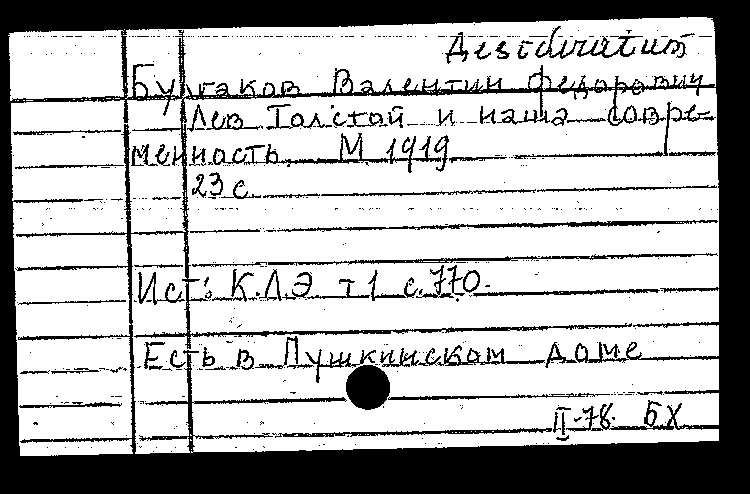 Дезidiratum
Булгаков Валентин Федорович
Лев Толстой и наша совре-
менность. М. 1919.
23 с.
Ист: К.Л.Э т 1 с. 770.
Есть в Пушкинском доме
II-78. БХ